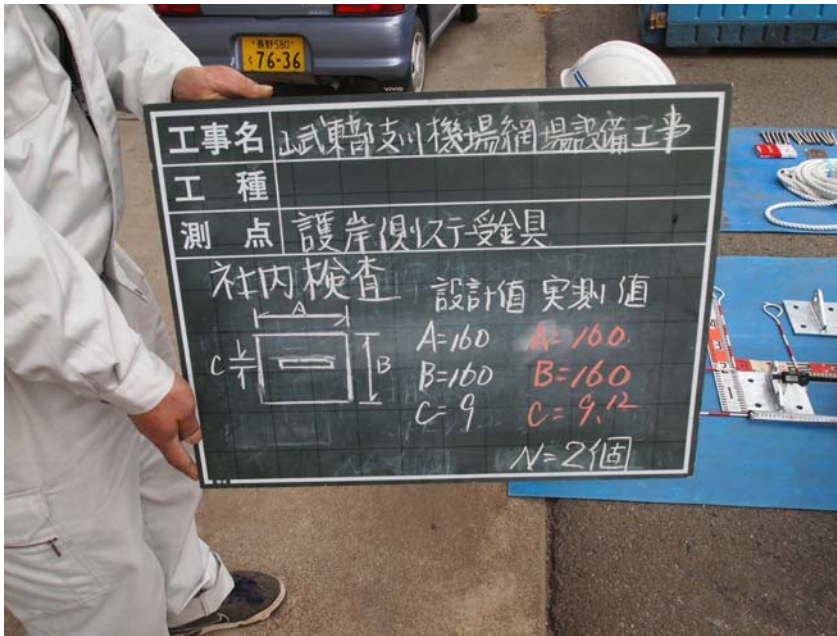 長野580
く76-36
VIVIO
工事名 山武東部支川機場網場設備工事
工種
測点 護岸側ステー受金具
社内検査
設計値 実測値
A
C
B
A=160 A=160
B=160 B=160
C=9 C=9.12
N=2個